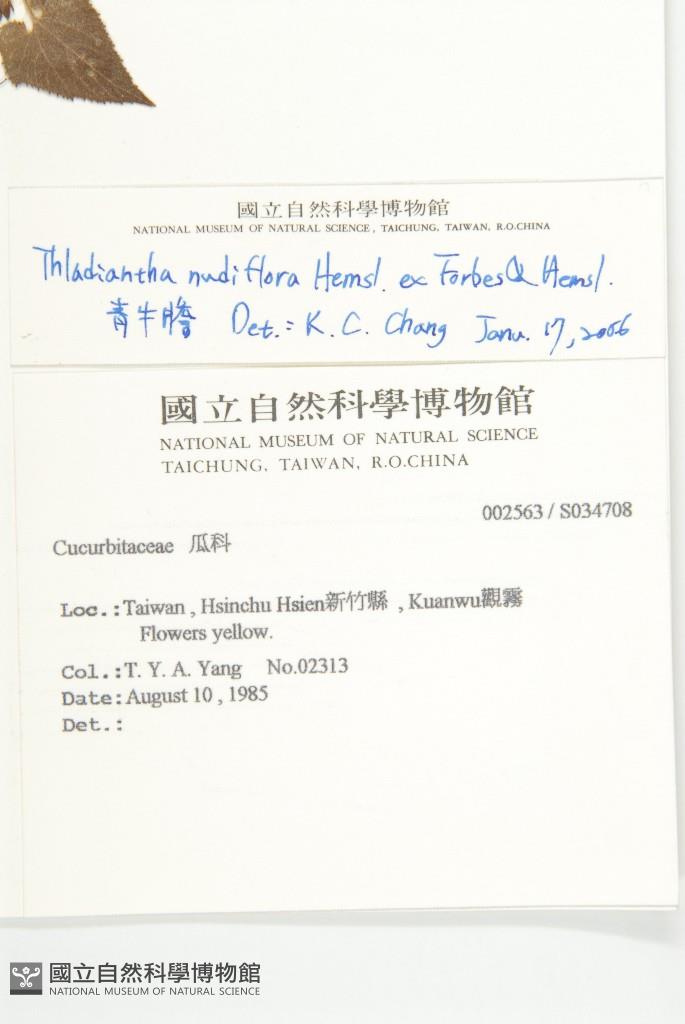 國立自然科學博物館
NATIONAL MUSEUM OF NATURAL SCIENCE, TAICHUNG, TAIWAN, R.O.CHINA
Thladiantha nudiflora Hemsl. ex Forbes & Hemsl.
青牛膽 Det.: K. C. Chang Janu. 17, 2006
國立自然科學博物館
NATIONAL MUSEUM OF NATURAL SCIENCE
TAICHUNG, TAIWAN, R.O.CHINA
002563 / S034708
Cucurbitaceae 瓜科
Loc.:Taiwan , Hsinchu Hsien新竹縣 , Kuanwu觀霧
Flowers yellow.
Col.:T. Y. A. Yang No.02313
Date:August 10 , 1985
Det.:
國立自然科學博物館
NATIONAL MUSEUM OF NATURAL SCIENCE